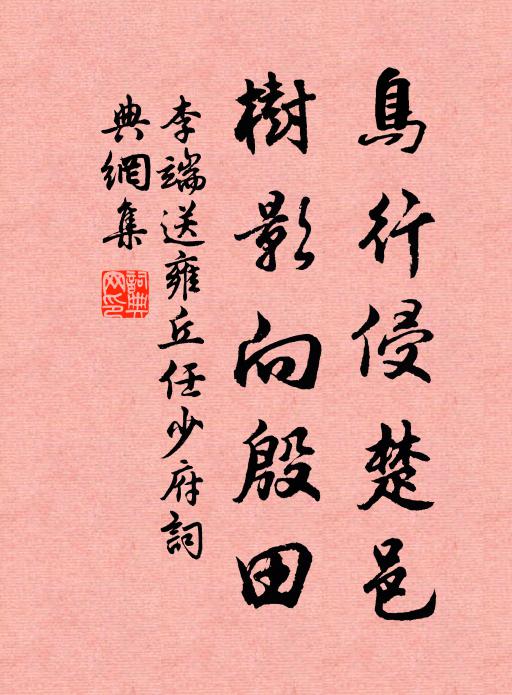 鳥行侵楚邑
樹影向殷田
李端送雍丘任少府詞
典網集
詞典網印